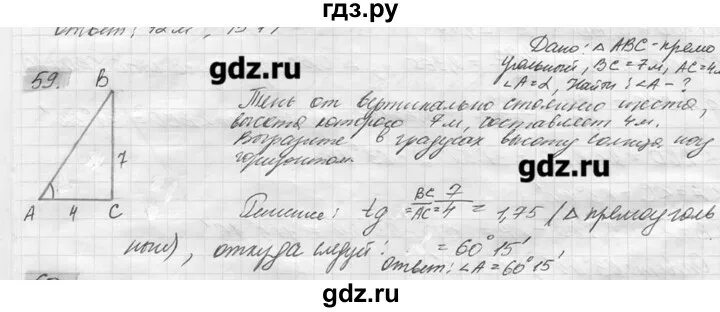 гдз.ру
Ответ: 12м,
Дано: △ABC - прямо
угольный, BC = 7м, AC = 4м
∠A = α, Найти: ∠A - ?
59.
B
gdz.ru
gdz.ru
Тень от вертикально стоящего шеста,
высота которого 7м, составляет 4м.
Выразите в градусах высоту солнца над
горизонтом
7
A 4 C
Решение: tg = BC/AC = 7/4 = 1,75 (△ прямоуголь
ный), откуда следует: = 60°15'
Ответ: ∠A = 60°15'
gdz.ru
gdz.ru
gdz.ru